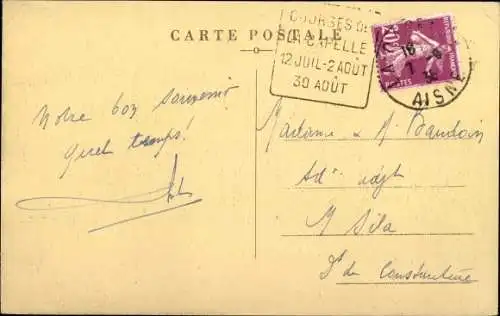 CARTE POSTALE
COURSES DE
LA CAPELLE
12 JUIL - 2 AOÛT
30 AOÛT
20c
AISNE
Notre bon souvenir
Quel temps!
Madame & M. Baudoin
Adj
M Sila
Constantine